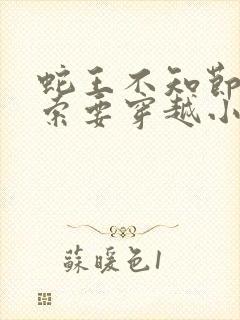 蛇王不知節
索要穿越小
蘇暖色1